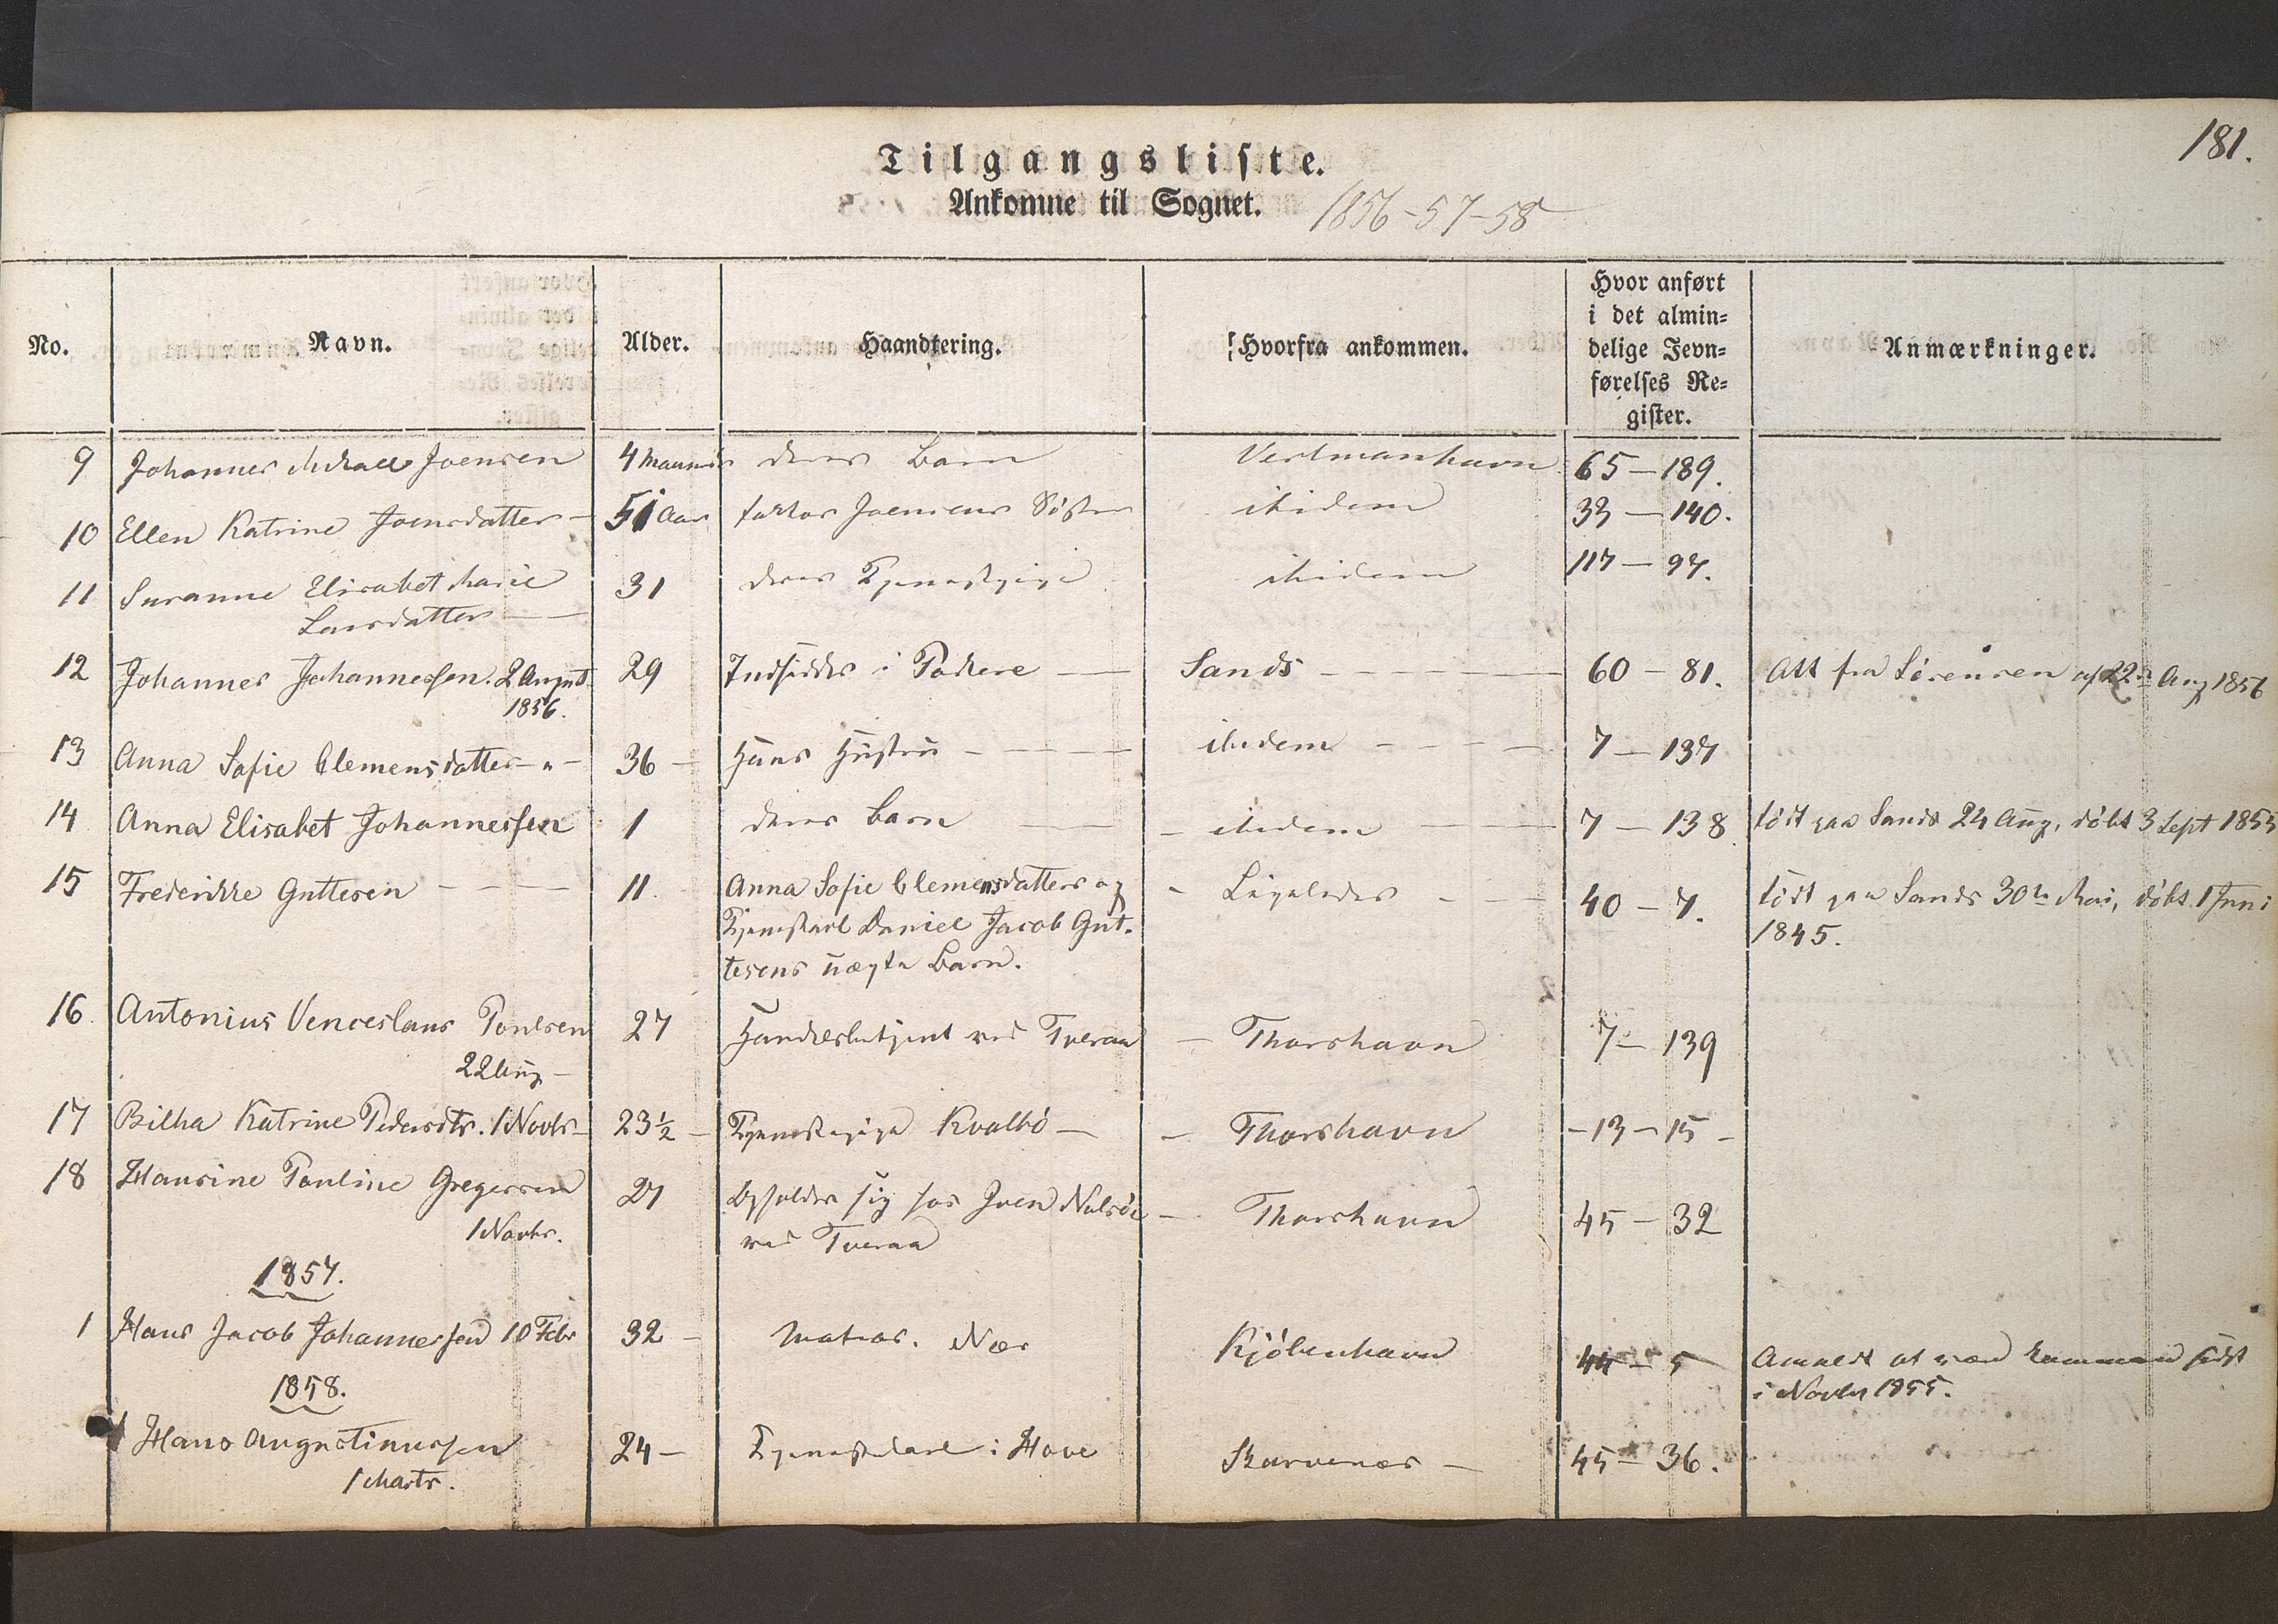 181.
Tilgangsliste.
Ankomne til Sognet. 1856-57-58
No. Navn. Alder. Haandtering. Hvorfra ankommen. Hvor anført i det almin= delige Jevn= førelses Re= gister. Anmærkninger.
9 Johannes Michael Joensen 4 Maaneder deres Barn Vestmanhavn 65-189.
10 Ellen Katrine Joensdatter - 51 Aar Joensens Søster ibidem 33-140.
11 Susanne Elisabet Marie 31 deres Tjenestepige ibidem 117-97.
Larsdatter
12 Johannes Johannessen. 2 August 29 Indsidder i Porkere - Sands - 60-81. Att fra Sørensen af 22de Aug 1856
1856.
13 Anna Sofie Clemensdatter - " - 36 - Hans Hustru - ibidem - 7-137
14 Anna Elisabet Johannessen 1 deres Barn - ibidem - 7-138 født paa Sands 24 Aug, døbt 3 Sept 1855
15 Frederikke Guttesen - 11. Anna Sofie Clemensdatters og - Ligeledes - 40-7. født paa Sands 30te Mai, døbt 1 Juni
Tjenestkarl Daniel Jacob Gut- 1845.
tesens uægte Barn.
16. Antonius Venceslaus Poulsen 27 Handelsbetjent ved Tveraa - Thorshavn 7-139
22 Aug -
17 Bilha Katrine Pedersdtr. 1 Novbr - 23½ - Tjenestepige Kvalbø - - Thorshavn -13-15-
18 Hansine Pouline Gregersen 27 Opholder sig hos Joen Nolsøe - Thorshavn 45-32
1 Novbr. ved Tveraa
1857.
1 Hans Jacob Johannessen 10 Febr 32 - Matros. Næs Kjøbenhavn 44-5 Anmeldt at være kommen hidt
i Novbr 1855.
1858.
1 Hans Augustinussen 24 - Tjenestekarl i Hove Skarvenæs - 45-36.
1 Marts.